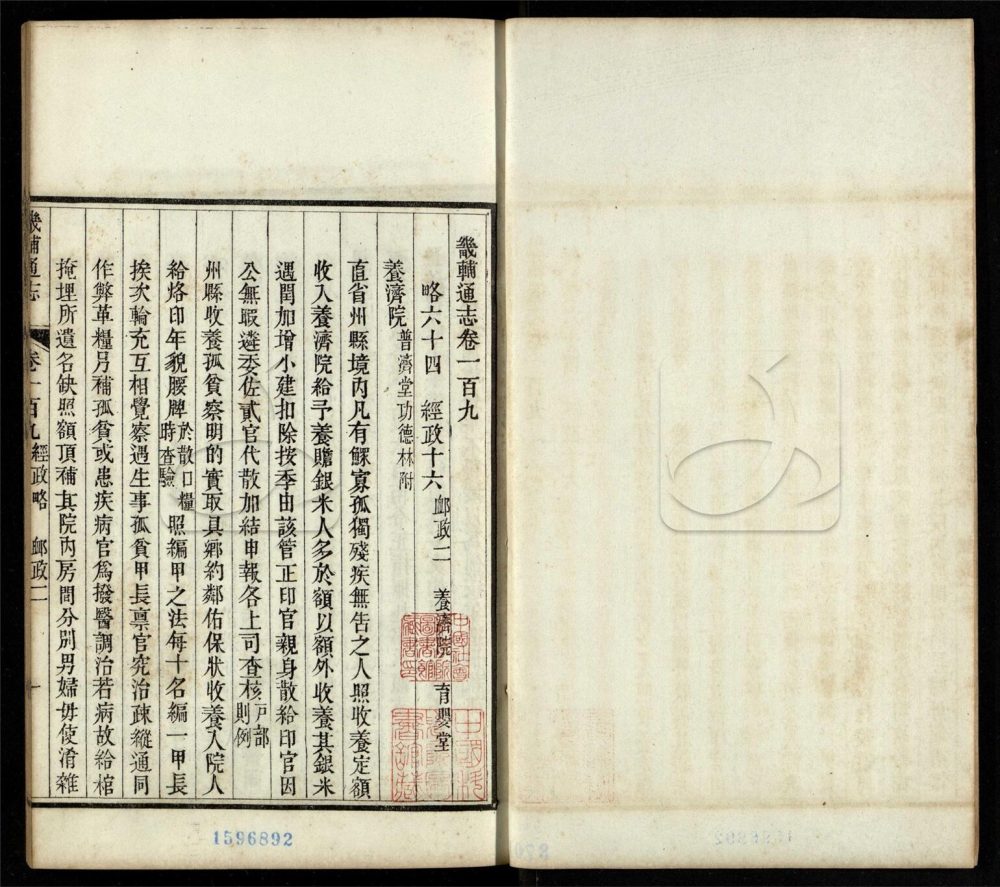 畿輔通志卷一百九
略六十四 經政十六 卹政二 養濟院 育嬰堂
養濟院 普濟堂功德林附
直省州縣境內凡有鰥寡孤獨殘疾無告之人照收養定額
收入養濟院給予養贍銀米人多於額以額外收養其銀米
遇閏加增小建扣除按季由該管正印官親身散給印官因
公無暇遴委佐貳官代散加結申報各上司查核戶部則例
州縣收養孤貧察明的實取具鄉約鄰佑保狀收養入院人
給烙印年貌腰牌於散口糧時查驗照編甲之法每十名編一甲長
挨次輪充互相覺察遇生事孤貧甲長稟官究治疎縱通同
作弊革糧另補孤貧或患疾病官為撥醫調治若病故給棺
掩埋所遺名缺照額頂補其院內房間分別男婦毋使淆雜
畿輔通志 卷一百九 經政略 卹政二 一
1596892